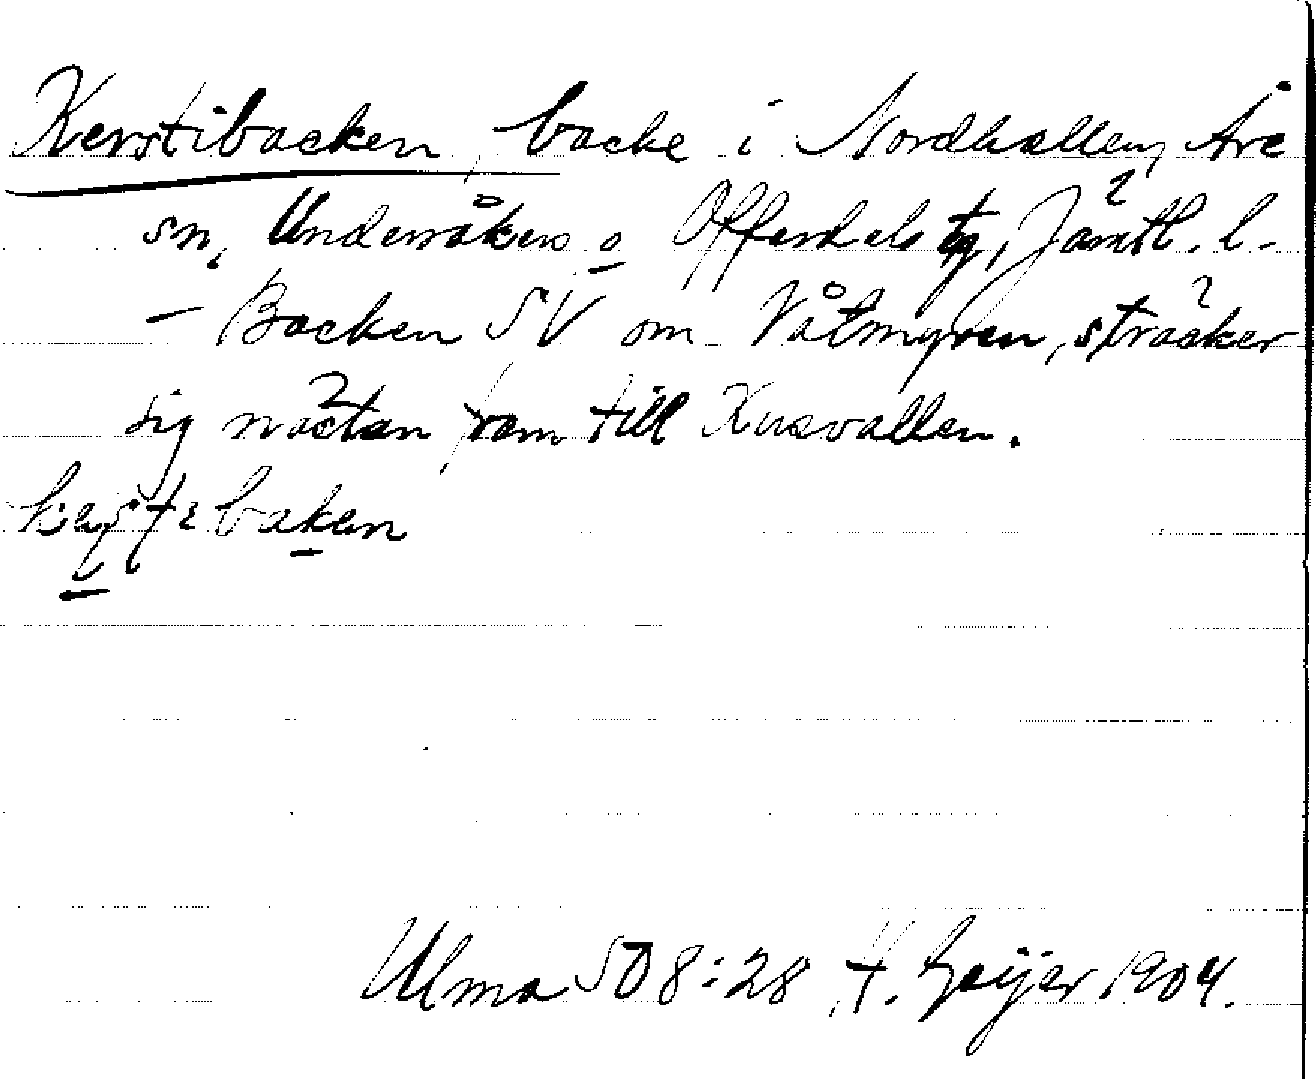 Kerstibacken, backe i Nordhallen, Åre
sn, Undersåkers o Offerdals tg, Jämtl. l.
– Backen SV om Våtmyren, sträcker
sig nästan fram till Husvallen.
Ulma 508:28 H. Geijer 1904.